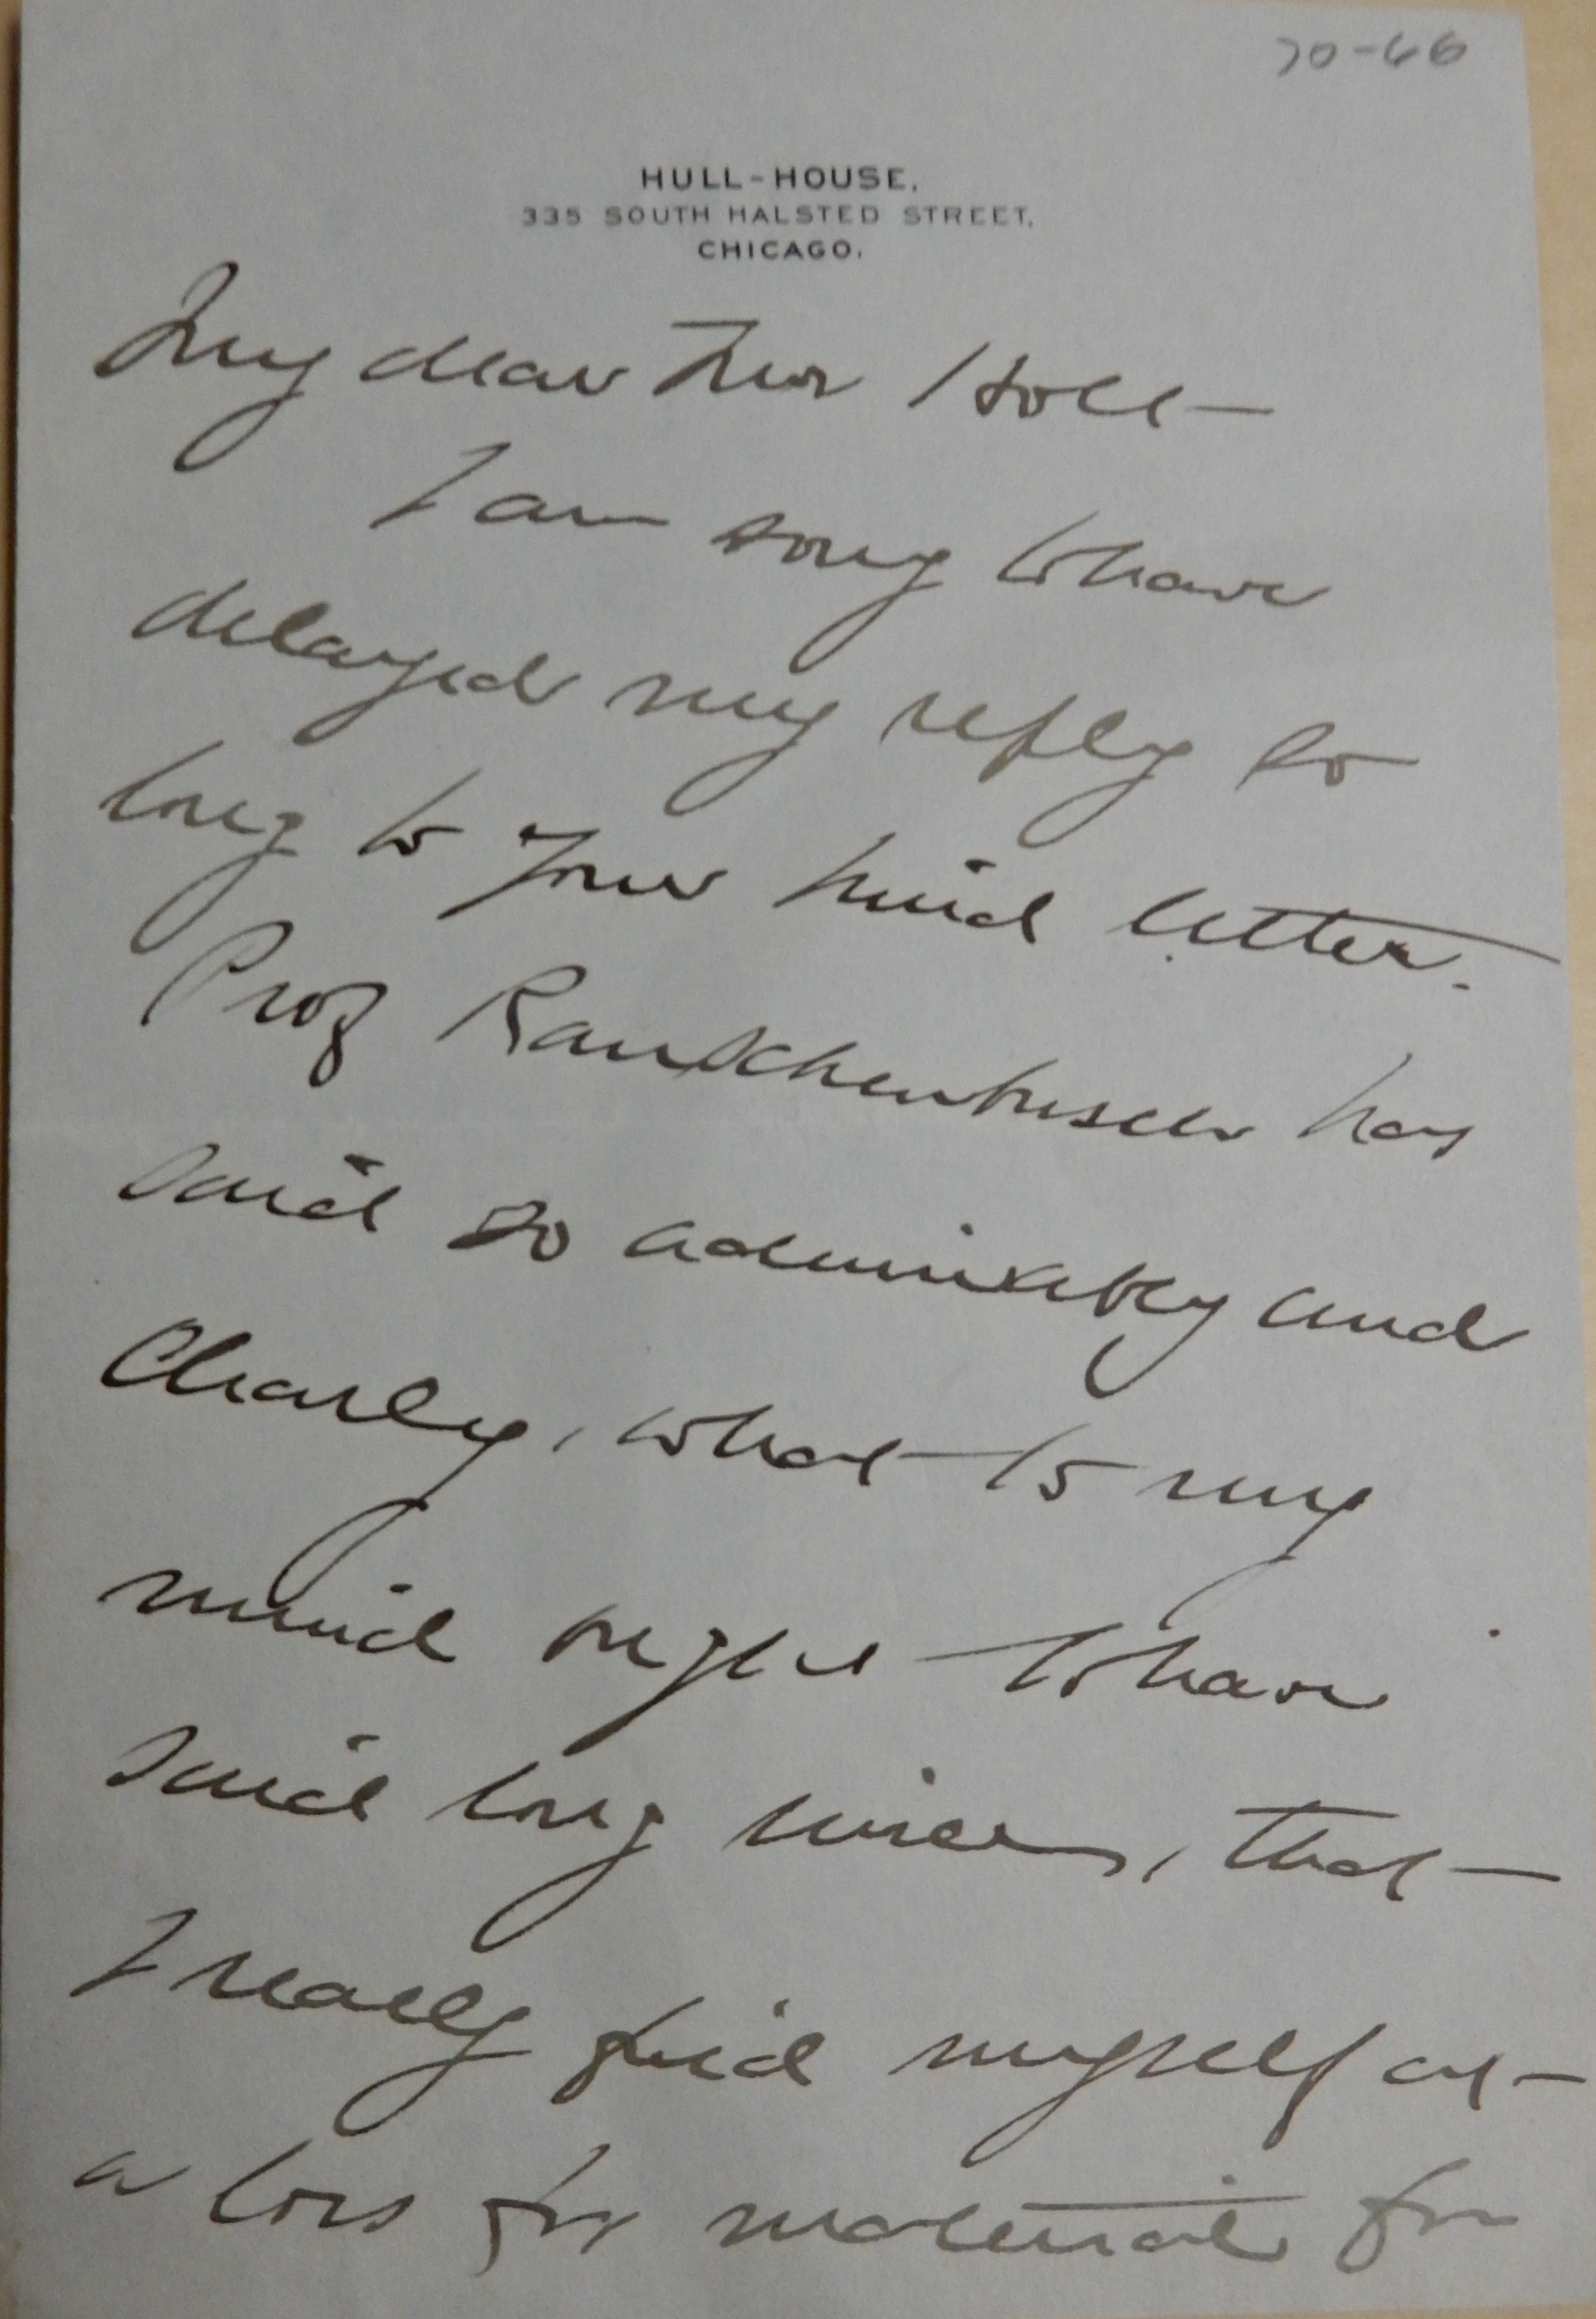 70-66
HULL-HOUSE.
335 SOUTH HALSTED STREET,
CHICAGO.
My dear Mr Holt —
I am sorry to have
delayed my reply so
long to your kind letter.
Prof Rauschenbusch has
said so admirably and
clearly, what to my
mind ought to have
said long since, that
I really find myself at
a loss for material for